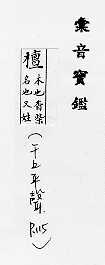 彙音寶鑑
檀 木也香柴
名也又姓
(干平聲 P.115)